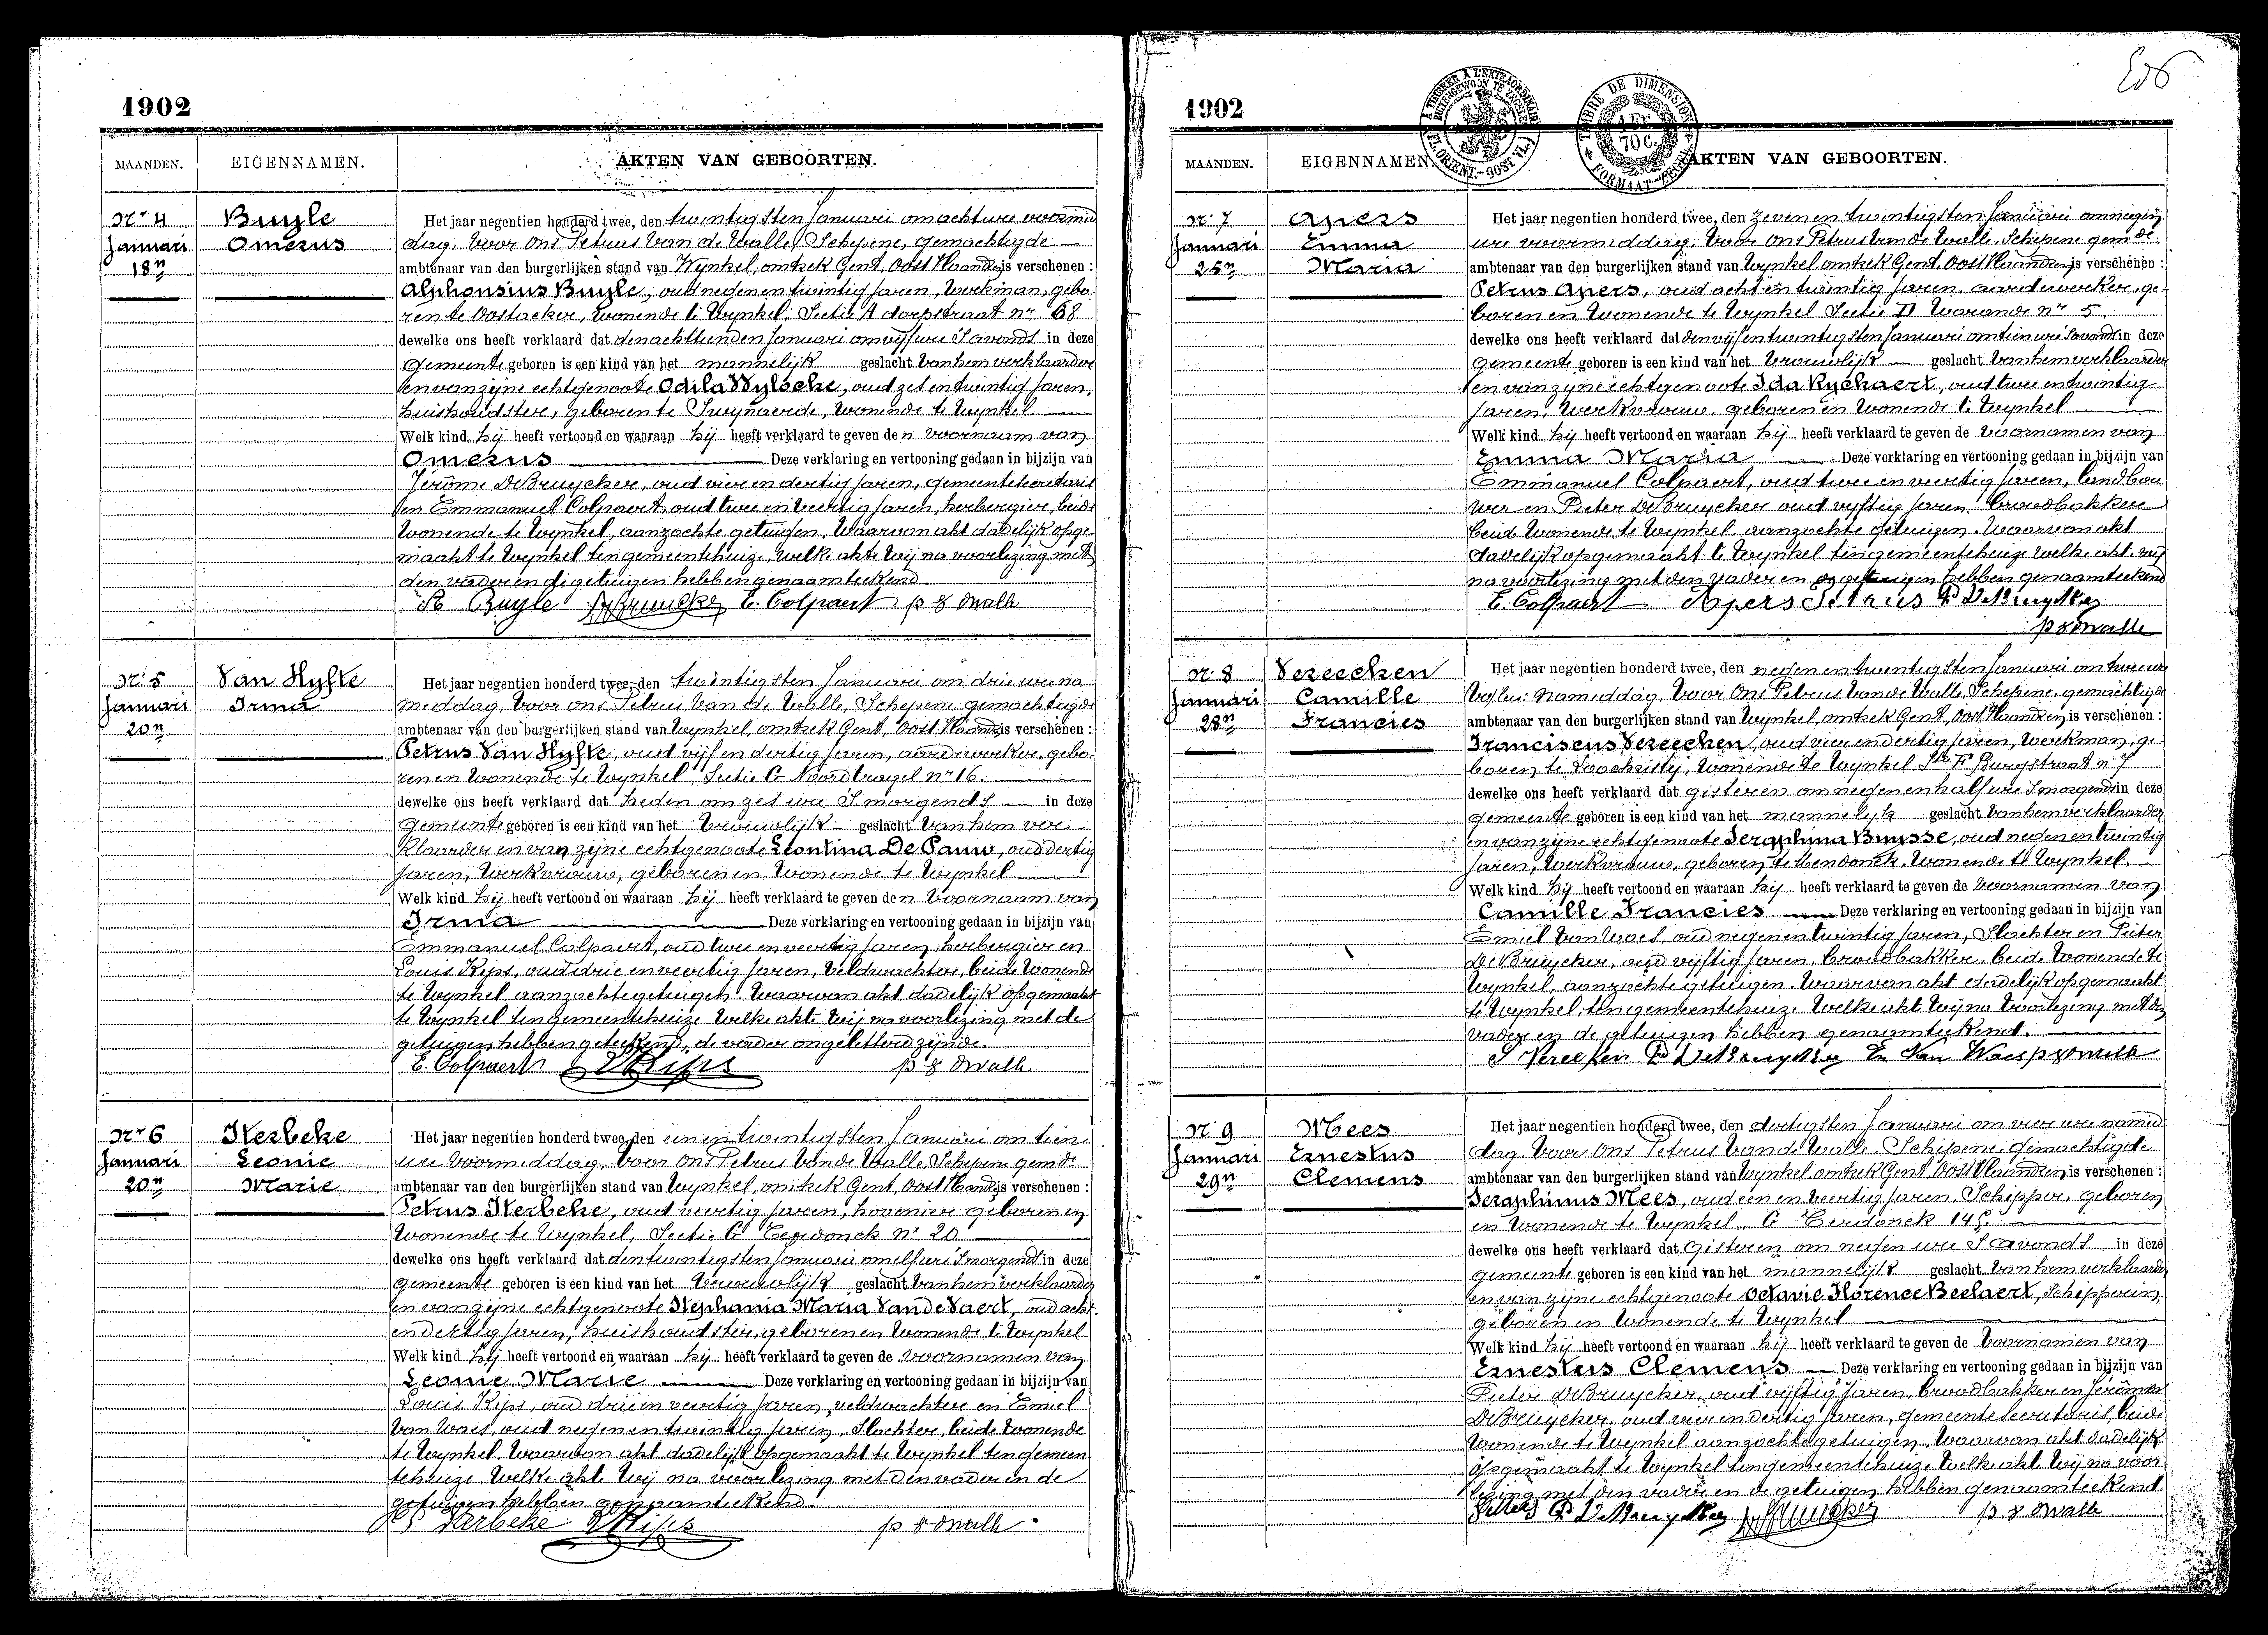 1902
MAANDEN. EIGENNAMEN. AKTEN VAN GEBOORTEN.
Nr 4 Buyle
Januari Omerus
18n
Het jaar negentien honderd twee, den twintigsten Januari om acht ure voormid
dag, voor ons Petrus Van de Walle, Schepene, gemachtigde
ambtenaar van den burgerlijken stand van Wynkel, omtrek Gent, Oost Vlaanderen is verschenen :
Alphonsius Buyle, oud negen en twintig jaren, werkman, gebo
ren te Oostacker, wonende te Wynkel, Sectie A dorpstraat nr 68
dewelke ons heeft verklaard dat den achttienden Januari om vijf ure 's avonds in deze
gemeente geboren is een kind van het mannelijk geslacht van hem verklaarder
en van zijne echtgenoote Odila Wylocke, oud zes en twintig jaren,
huishoudster, geboren te Swynaerde, wonende te Wynkel
Welk kind hij heeft vertoond en waaraan hij heeft verklaard te geven den voornaam van
Omerus Deze verklaring en vertooning gedaan in bijzijn van
Jérôme De Bruycker, oud vier en dertig jaren, gemeentesecretaris
en Emmanuel Colpaert, oud twee en veertig jaren, herbergier, beide
wonende te Wynkel, aanzochte getuigen. Waarvan akt dadelijk opge
maakt te Wynkel ten gemeentehuize, welke akte wij na voorlezing met
den vader en de getuigen hebben genaamteekend.
A Buyle E. Colpaert p v d Walle
Nr 5 Van Hyfte
Januari Irma
20n
Het jaar negentien honderd twee, den twintigsten Januari om drie ure na
middag, voor ons Petrus Van de Walle, Schepene gemachtigde
ambtenaar van den burgerlijken stand van Wynkel, omtrek Gent, Oost Vlaanderen is verschenen :
Petrus Van Hyfte, oud vijf en dertig jaren, aardewerker, gebo
ren en wonende te Wynkel, Sectie C Noordlangel nr 16.
dewelke ons heeft verklaard dat heden om zes ure 's morgends in deze
gemeente geboren is een kind van het vrouwelijk geslacht van hem ver
klaarder en van zijne echtgenoote Leontina De Pauw, oud dertig
jaren, werkvrouw, geboren en wonende te Wynkel
Welk kind hij heeft vertoond en waaraan hij heeft verklaard te geven den voornaam van
Irma Deze verklaring en vertooning gedaan in bijzijn van
Emmanuel Colpaert, oud twee en veertig jaren, herbergier en
Louis Kips, oud drie en veertig jaren, veldwachter, beide wonende
te Wynkel aanzochte getuigen. Waarvan akt dadelijk opgemaakt
te Wynkel ten gemeentehuize welke akte wij na voorlezing met de
getuigen hebben geteekend, de vader ongeletterd zijnde.
E. Colpaert L Kips p v d Walle
Nr 6 Sterbeke
Januari Leonie
20n Marie
Het jaar negentien honderd twee, den een en twintigsten Januari om tien
ure voormiddag, voor ons Petrus Van de Walle, Schepene gemde
ambtenaar van den burgerlijken stand van Wynkel, omtrek Gent, Oost Vlaanderen is verschenen :
Petrus Sterbeke, oud veertig jaren, hovenier geboren en
wonende te Wynkel, Sectie C Terdonck nr 20
dewelke ons heeft verklaard dat den twintigsten Januari om elf ure 's morgends in deze
gemeente geboren is een kind van het vrouwelijk geslacht van hem verklaarder
en van zijne echtgenoote Stephania Maria Van de Vaert, oud acht
en dertig jaren, huishoudster, geboren en wonende te Wynkel
Welk kind hij heeft vertoond en waaraan hij heeft verklaard te geven de voornamen van
Leonie Marie Deze verklaring en vertooning gedaan in bijzijn van
Louis Kips, oud drie en veertig jaren, veldwachter en Emiel
Van Waes, oud negen en twintig jaren, Slachter, beide wonende
te Wynkel. Waarvan akt dadelijk opgemaakt te Wynkel ten gemeen
tehuize welke akte wij na voorlezing met den vader en de
getuigen hebben genaamteekend.
L Kips p v d Walle
1902
MAANDEN. EIGENNAMEN. AKTEN VAN GEBOORTEN.
TIMBRE DE DIMENSION
1 Fr. 70 C.
Nr 7 Apers
Januari Emma
25n Maria
Het jaar negentien honderd twee, den zeven en twintigsten Januari om negen
ure voormiddag, voor ons Petrus Van de Walle, Schepene gemde
ambtenaar van den burgerlijken stand van Wynkel, omtrek Gent, Oost Vlaanderen is verschenen :
Petrus Apers, oud acht en twintig jaren aardewerker, ge
boren en wonende te Wynkel Sectie D Warande nr 5.
dewelke ons heeft verklaard dat den vijf en twintigsten Januari om tien ure 's avonds in deze
gemeente geboren is een kind van het vrouwelijk geslacht van hem verklaarder
en van zijne echtgenoote Ida Ryckaert, oud twee en twintig
jaren, werkvrouw, geboren en wonende te Wynkel
Welk kind hij heeft vertoond en waaraan hij heeft verklaard te geven de voornamen van
Emma Maria Deze verklaring en vertooning gedaan in bijzijn van
Emmanuel Colpaert, oud twee en veertig jaren, landbou
wer en Pieter De Bruycker oud vijftig jaren broodbakker
beide wonende te Wynkel, aanzochte getuigen. Waarvan akt
dadelijk opgemaakt te Wynkel ten gemeentehuize welke akte wij
na voorlezing met den vader en de getuigen hebben genaamteekend
E. Colpaert Apers Petrus P De Bruycker
p v d Walle
Nr 8 Vereecken
Januari Camille
28n Francies
Het jaar negentien honderd twee, den negen en twintigsten Januari om twee ure
namiddag, voor ons Petrus Van de Walle, Schepene, gemachtigde
ambtenaar van den burgerlijken stand van Wynkel, omtrek Gent, Oost Vlaanderen, is verschenen :
Franciscus Vereecken, oud vier en dertig jaren, werkman, ge
boren te Loochristy, wonende te Wynkel Stie F Burgstraat nr 7
dewelke ons heeft verklaard dat gisteren om negen en half ure 's morgends in deze
gemeente geboren is een kind van het mannelijk geslacht van hem verklaarder
en van zijne echtgenoote Seraphina Buysse, oud negen en twintig
jaren, werkvrouw, geboren te Mendonck, wonende te Wynkel.
Welk kind hij heeft vertoond en waaraan hij heeft verklaard te geven de voornamen van
Camille Francies Deze verklaring en vertooning gedaan in bijzijn van
Emiel Van Waes, oud negen en twintig jaren, Slachter en Pieter
De Bruycker, oud vijftig jaren, broodbakker, beide wonende te
Wynkel, aanzochte getuigen. Waarvan akt dadelijk opgemaakt
te Wynkel ten gemeentehuize welke akte wij na voorlezing met den
vader en de getuigen hebben genaamteekend.
P De Bruycker Em Van Waes p v d Walle
Nr 9 Mees
Januari Ernestus
29n Clemens
Het jaar negentien honderd twee, den dertigsten Januari om vier ure namid
dag voor ons Petrus Van de Walle, Schepene, gemachtigde
ambtenaar van den burgerlijken stand van Wynkel omtrek Gent, Oost Vlaanderen, is verschenen :
Seraphinus Mees, oud een en veertig jaren, Schipper, geboren
en wonende te Wynkel, C Terdonck
dewelke ons heeft verklaard dat gisteren om negen ure 's avonds in deze
gemeente geboren is een kind van het mannelijk geslacht van hem verklaarder
en van zijne echtgenoote Octavie Florence Beelaert, Schipperin,
geboren en wonende te Wynkel
Welk kind hij heeft vertoond en waaraan hij heeft verklaard te geven de voornamen van
Ernestus Clemens Deze verklaring en vertooning gedaan in bijzijn van
Pieter De Bruycker, oud vijftig jaren, broodbakker en Jérôme
De Bruycker, oud vier en dertig jaren, gemeente secretaris, beide
wonende te Wynkel aanzochte getuigen, Waarvan akt dadelijk
opgemaakt te Wynkel ten gemeentehuize welke akte wij na voor
lezing met den vader en de getuigen hebben genaamteekend
P De Bruycker p v d Walle